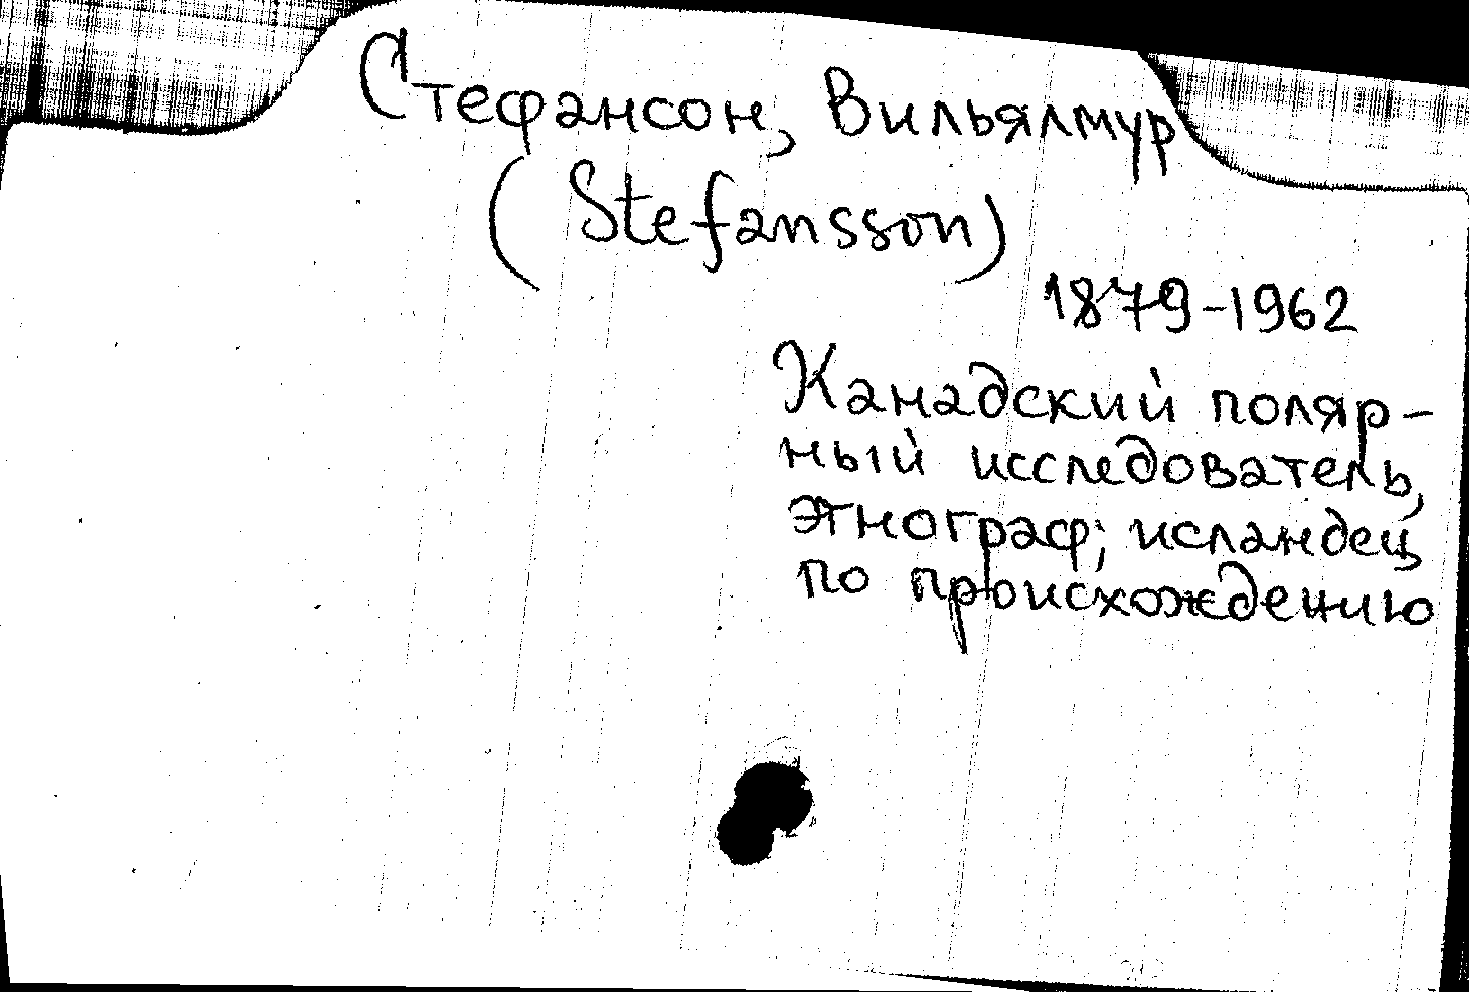 Стефансон, Вильялмур
(Stefansson)
1879-1962
Канадский поляр-
ный исследователь,
этнограф; исландец
по происхождению